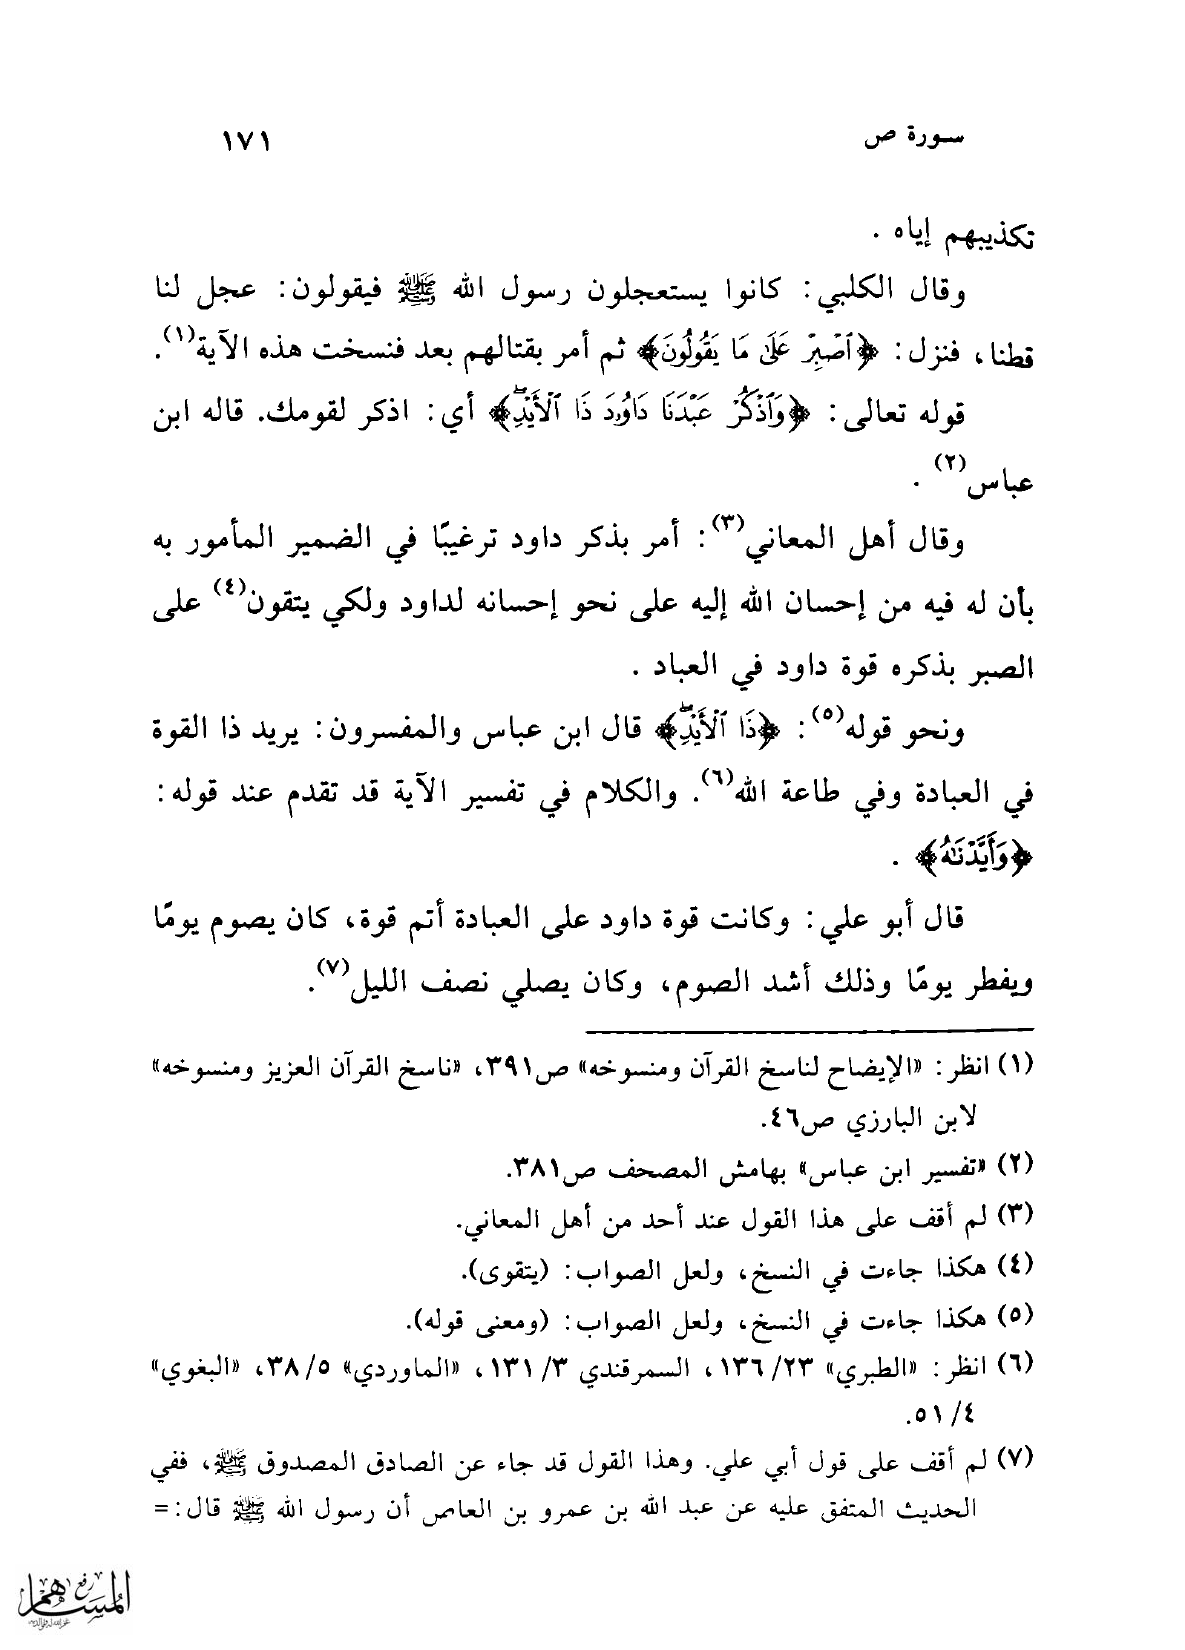 سورة ص
١٧١
تكذيبهم إياه .
وقال الكلبي: كانوا يستعجلون رسول الله ﷺ فيقولون: عجل لنا
قطنا، فنزل: ﴿ٱصۡبِرۡ عَلَىٰ مَا يَقُولُونَ﴾ ثم أمر بقتالهم بعد فنسخت هذه الآية(١).
قوله تعالى: ﴿وَٱذۡكُرۡ عَبۡدَنَا دَاوُۥدَ ذَا ٱلۡأَيۡدِۖ﴾ أي: اذكر لقومك. قاله ابن
عباس(٢) .
وقال أهل المعاني(٣): أمر بذكر داود ترغيبًا في الضمير المأمور به
بأن له فيه من إحسان الله إليه على نحو إحسانه لداود ولكي يتقون(٤) على
الصبر بذكره قوة داود في العباد .
ونحو قوله(٥): ﴿ذَا ٱلۡأَيۡدِۖ﴾ قال ابن عباس والمفسرون: يريد ذا القوة
في العبادة وفي طاعة الله(٦). والكلام في تفسير الآية قد تقدم عند قوله:
﴿وَأَيَّدۡنَٰهُ﴾ .
قال أبو علي: وكانت قوة داود على العبادة أتم قوة، كان يصوم يومًا
ويفطر يومًا وذلك أشد الصوم، وكان يصلي نصف الليل(٧).
(١) انظر: «الإيضاح لناسخ القرآن ومنسوخه» ص٣٩١، «ناسخ القرآن العزيز ومنسوخه»
لابن البارزي ص٤٦.
(٢) «تفسير ابن عباس» بهامش المصحف ص٣٨١.
(٣) لم أقف على هذا القول عند أحد من أهل المعاني.
(٤) هكذا جاءت في النسخ، ولعل الصواب: (يتقوى).
(٥) هكذا جاءت في النسخ، ولعل الصواب: (ومعنى قوله).
(٦) انظر: «الطبري» ٢٣/ ١٣٦، السمرقندي ٣/ ١٣١، «الماوردي» ٥/ ٣٨، «البغوي»
٤/ ٥١.
(٧) لم أقف على قول أبي علي. وهذا القول قد جاء عن الصادق المصدوق ﷺ، ففي
الحديث المتفق عليه عن عبد الله بن عمرو بن العاص أن رسول الله ﷺ قال: =
رفع
المساهم